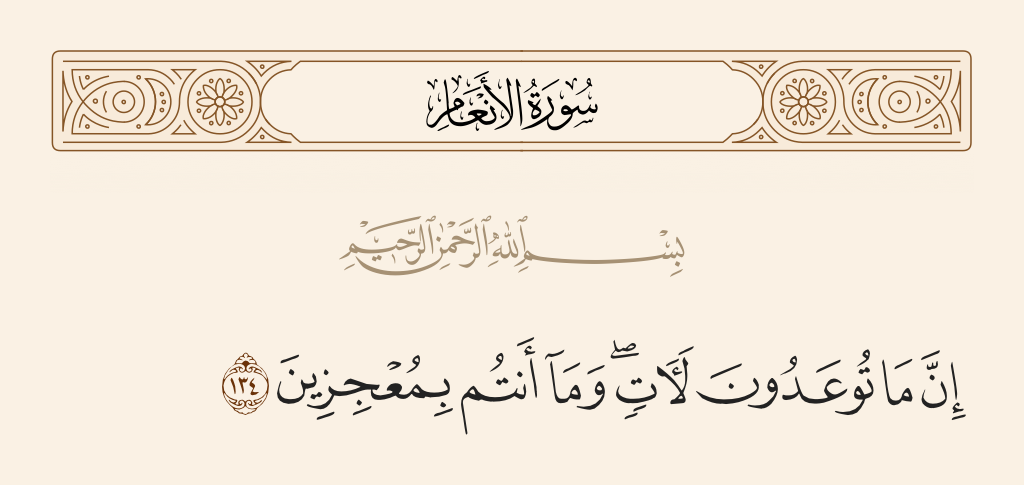 سُورَةُ الأَنْعَامِ
بِسْمِ ٱللَّهِ ٱلرَّحْمَٰنِ ٱلرَّحِيمِ
إِنَّ مَا تُوعَدُونَ لَـَٔاتٍ ۖ وَمَآ أَنتُم بِمُعْجِزِينَ ١٣٤